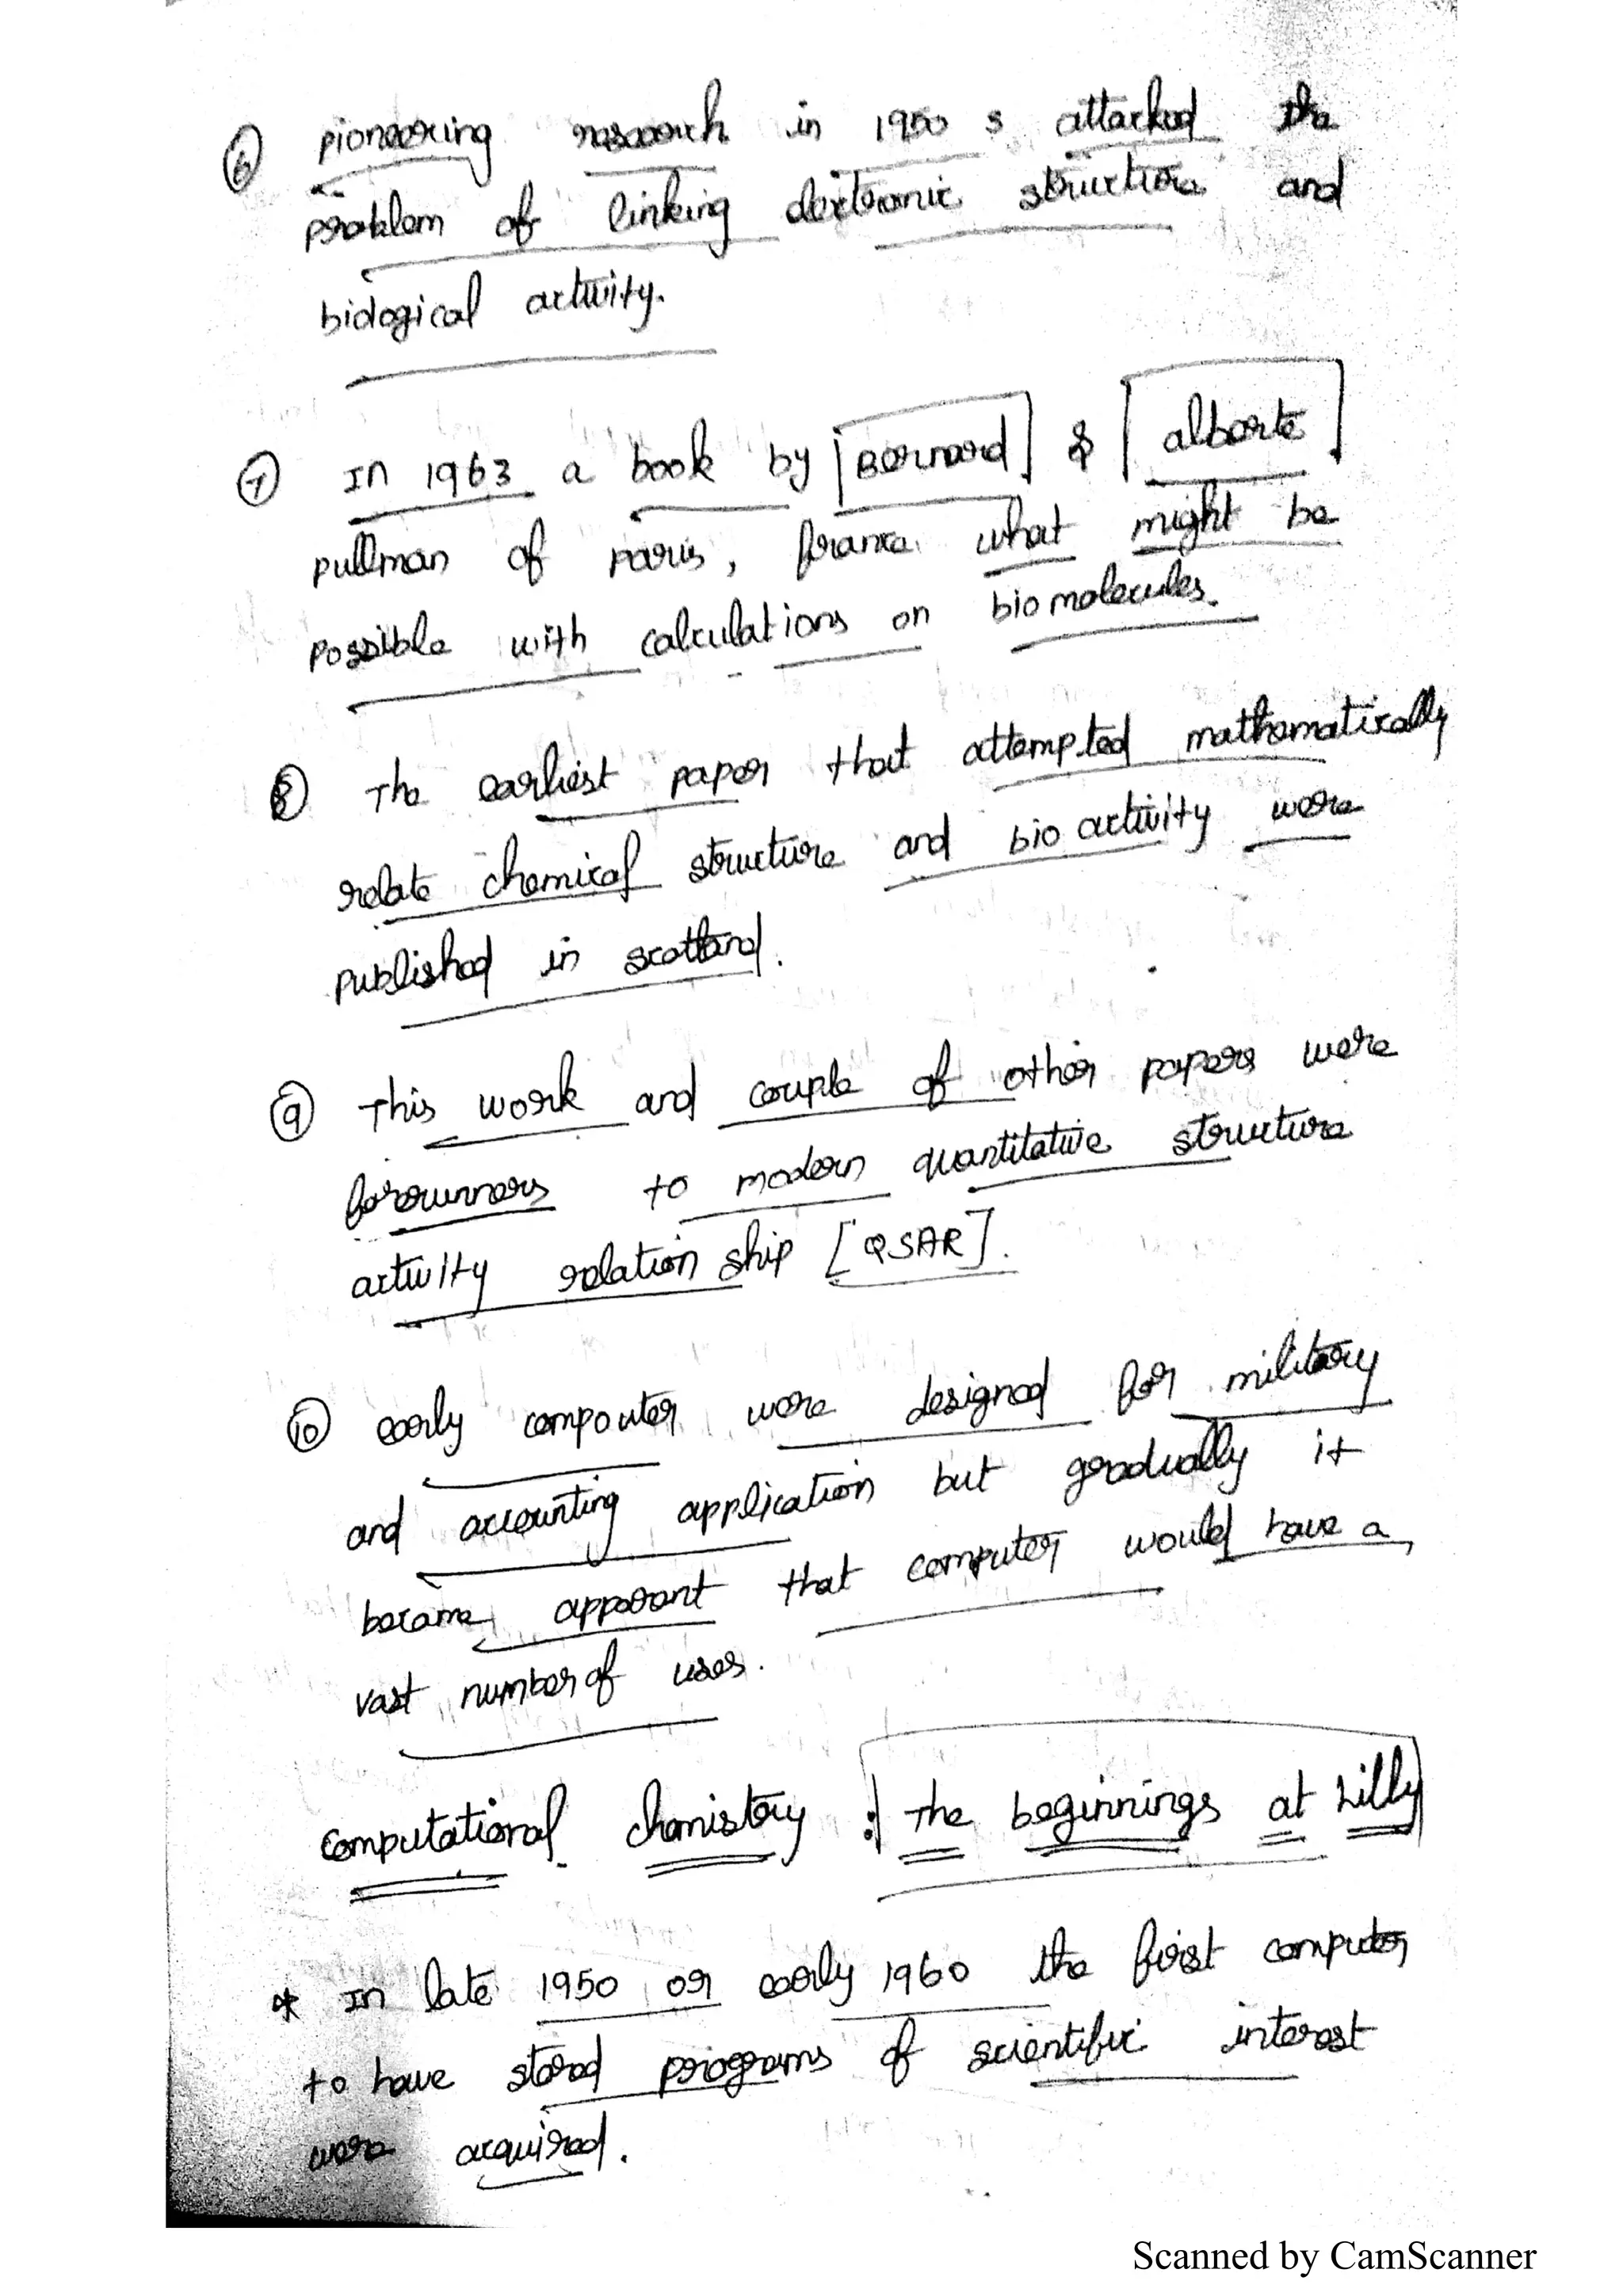 ⑥ pioneering research in 1950 s attacked the
problem of linking electronic structure and
biological activity.
⑦ In 1963 a book by [Bernard] & [alberte]
pullman of Paris, france what might be
possible with calculations on bio molecules.
⑧ The earliest paper that attempted mathematically
relate chemical structure and bio activity were
published in scotland.
⑨ This work and couple of other papers were
forerunners to modern quantitative structure
activity relation ship [QSAR].
⑩ early compouter were designed for military
and accounting application but gradually it
became apparent that computer would have a
vast number of uses.
computational chemistry : The beginnings at Lilly
* In late 1950 or early 1960 the first computer
to have stored programs of scientific interest
were acquired.
Scanned by CamScanner